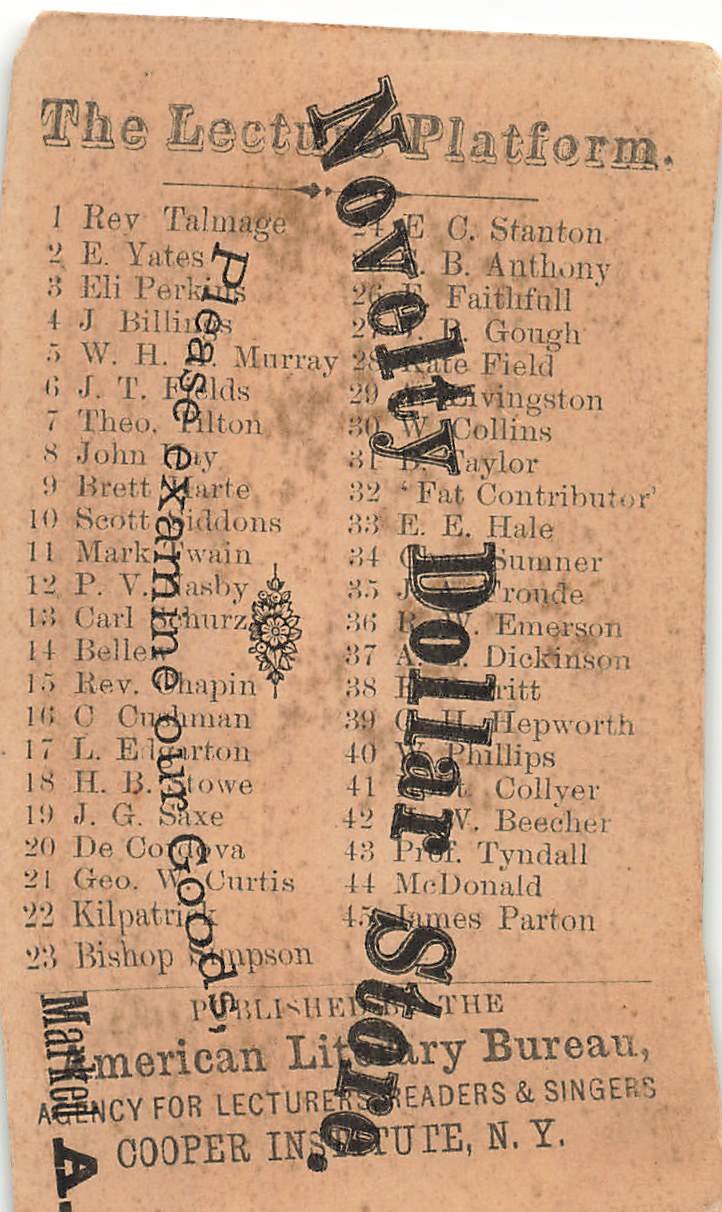 The Lecture Platform.
1 Rev Talmage
2 E. Yates
3 Eli Perkins
4 J Billings
5 W. H. H. Murray
6 J. T. Fields
7 Theo. Tilton
8 John Hay
9 Brett Harte
10 Scott Siddons
11 Mark Twain
12 P. V. Nasby
13 Carl Schurz
14 Bellew
15 Rev. Chapin
16 C Cushman
17 L. Edgarton
18 H. B. Stowe
19 J. G. Saxe
20 De Cordova
21 Geo. W. Curtis
22 Kilpatrick
23 Bishop Simpson
24 E C. Stanton
B. Anthony
26 E. Faithfull
27 J. B. Gough
28 Kate Field
29 Livingston
30 W. Collins
31 B. Taylor
32 ‘Fat Contributor’
33 E. E. Hale
34 Sumner
35 J. A. Froude
36 R. W. Emerson
37 A. E. Dickinson
38
39 G. H. Hepworth
40 W. Phillips
41 Collyer
42 H. W. Beecher
43 Prof. Tyndall
44 McDonald
45 James Parton
PUBLISHED BY THE
American Literary Bureau,
AGENCY FOR LECTURERS READERS & SINGERS
COOPER INSTITUTE, N. Y.
Novelty Dollar Store.
Please examine our Goods,
Marked A.